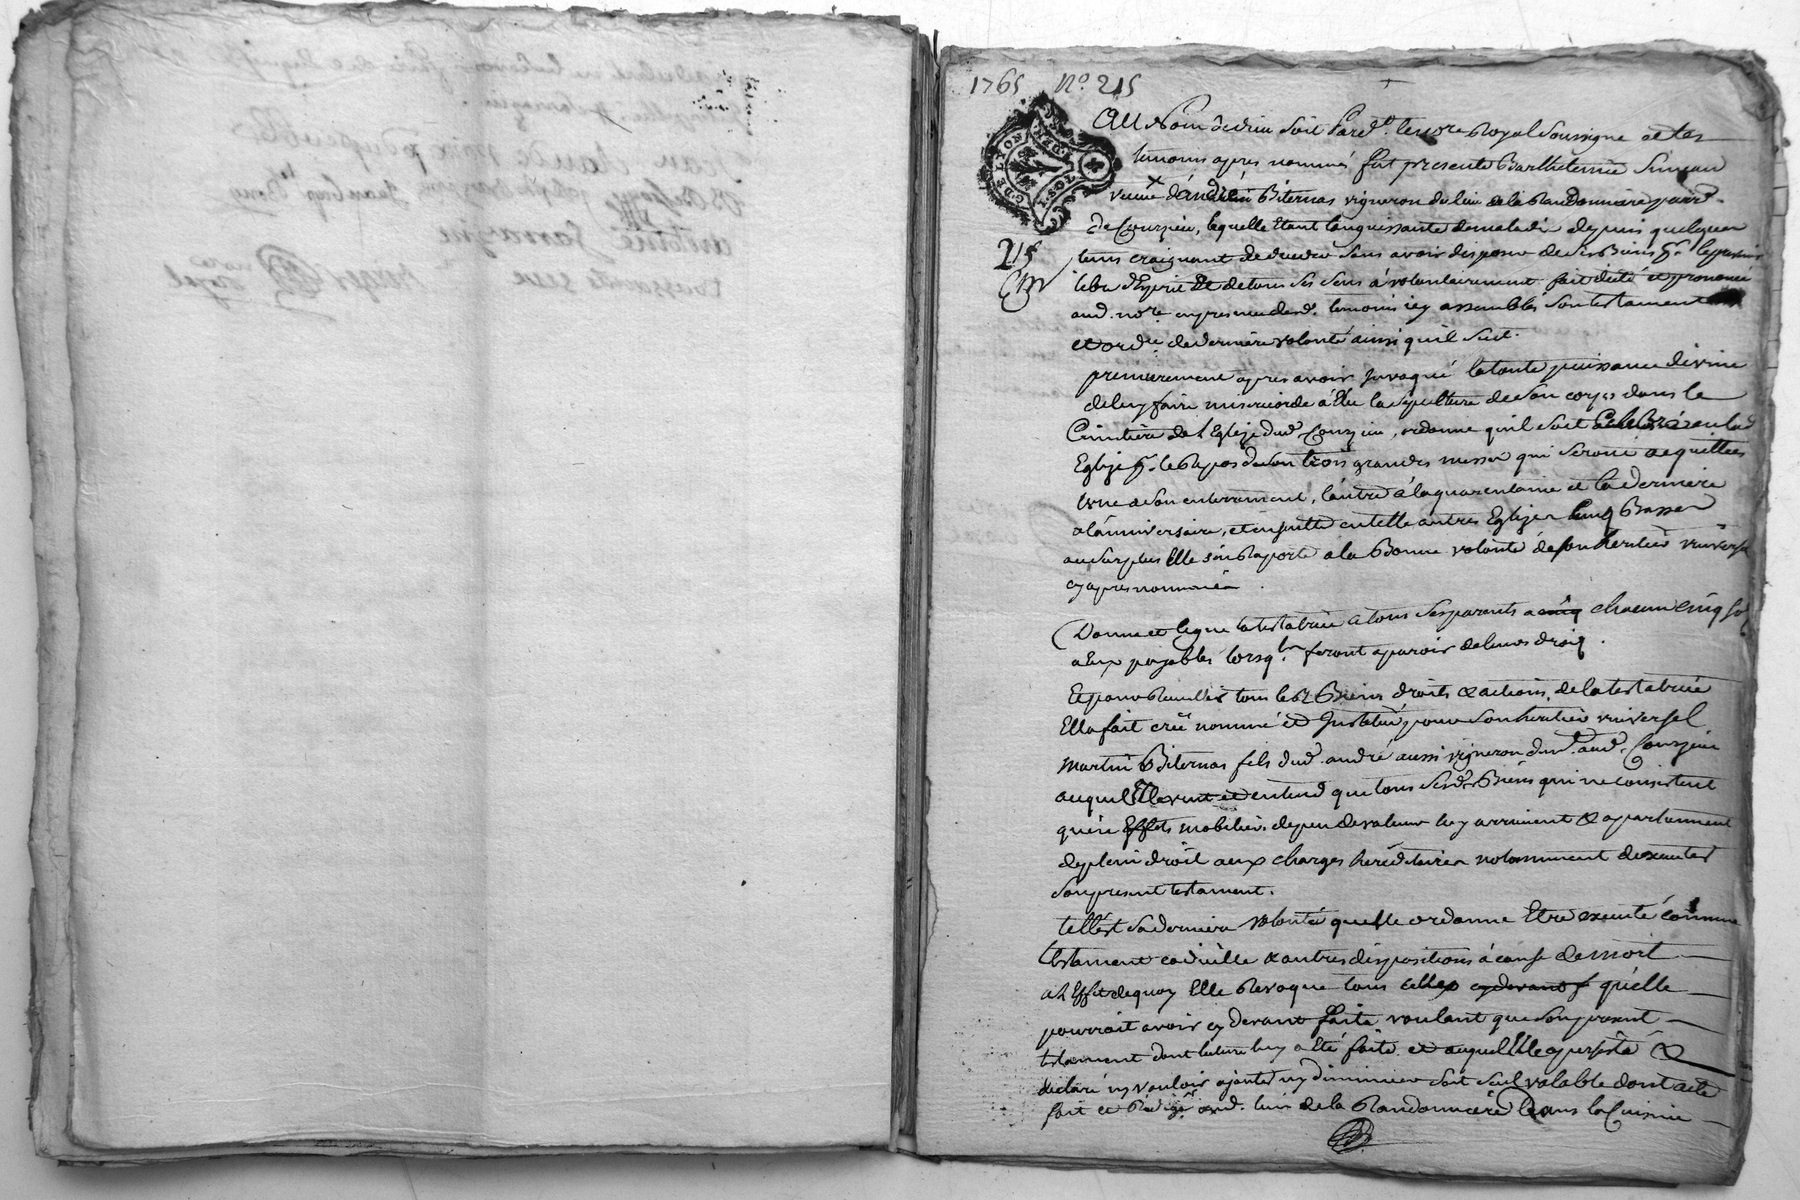 1765 N.º 215
G. DE LYON
Au Nom de dieu Soit Pard.t le no.re Royal Soussigné et les
temoins apres nommés fut presente Barthelemie Simean
veuve d'andré Biternas vigneron du lieu de la Randonniere parr.e
de Courzieu, laquelle Etant languissante de maladie depuis quelques
tems craignant de deceder sans avoir disposé de ses Biens
215
libre d'Esprit Et de tous ses sens à volontairement fait dicté et prononcé
aud. no.re en presence desd. temoins icy assemblés son testament
et ord.e de derniere volonté ainsi qu'il suit.
premierement apres avoir Invoqué la toute puissance divine
de luy faire misericorde à Elu la sepulture de son corps dans le
Cimitière de l'Eglise dud. Courzieu, ordonne qu'il soit Celebré en lad.
Eglise p.r le Repos de son trois grandes messes qui seront acquittées
l'une a son enterrement, l'autre à la quarentaine et la derniere
a l'anniversaire, et ensuitte en telle autres Eglises cinq Basses
au surplus Elle s'en Raporte a la Bonne volonté de son heritier universel
cy apres nommé
Donne et legue la testatrice à tous ses parents a cinq chacun cinq sols
a Eux payables lorsq.ls feront aparoir de leurs droits.
Et pour tous les Biens droits & actions de la testatrice
Ella fait créé nommé et Institué pour son heritier universel
Martin Biternas fils dud. andré aussi vigneron dem.t aud. Courzieu
auquel Elle veut et entend que tous sesd. Biens qui ne consistent
qu'en Effets mobiliers de peu de valeur luy arrivent & apartiennent
de plein droit aux charges hereditaires notamment d'executer
son present testament.
tell'est sa derniere volonté quelle ordonne Etre executé comme
testament codicille & autres dispositions à cause de mort
a l'Effet de quoy Elle Revoque tous celles cy devant f qu'elle
pourroit avoir cy devant faits voulant que son present
testament dont lecture luy a Eté faite et auquel Elle a persisté &
declaré n'y vouloir ajouter ny diminuer soit seul valable dont acte
fait et Rédigé aud. lieu de la Randonniere dans la Cuisine